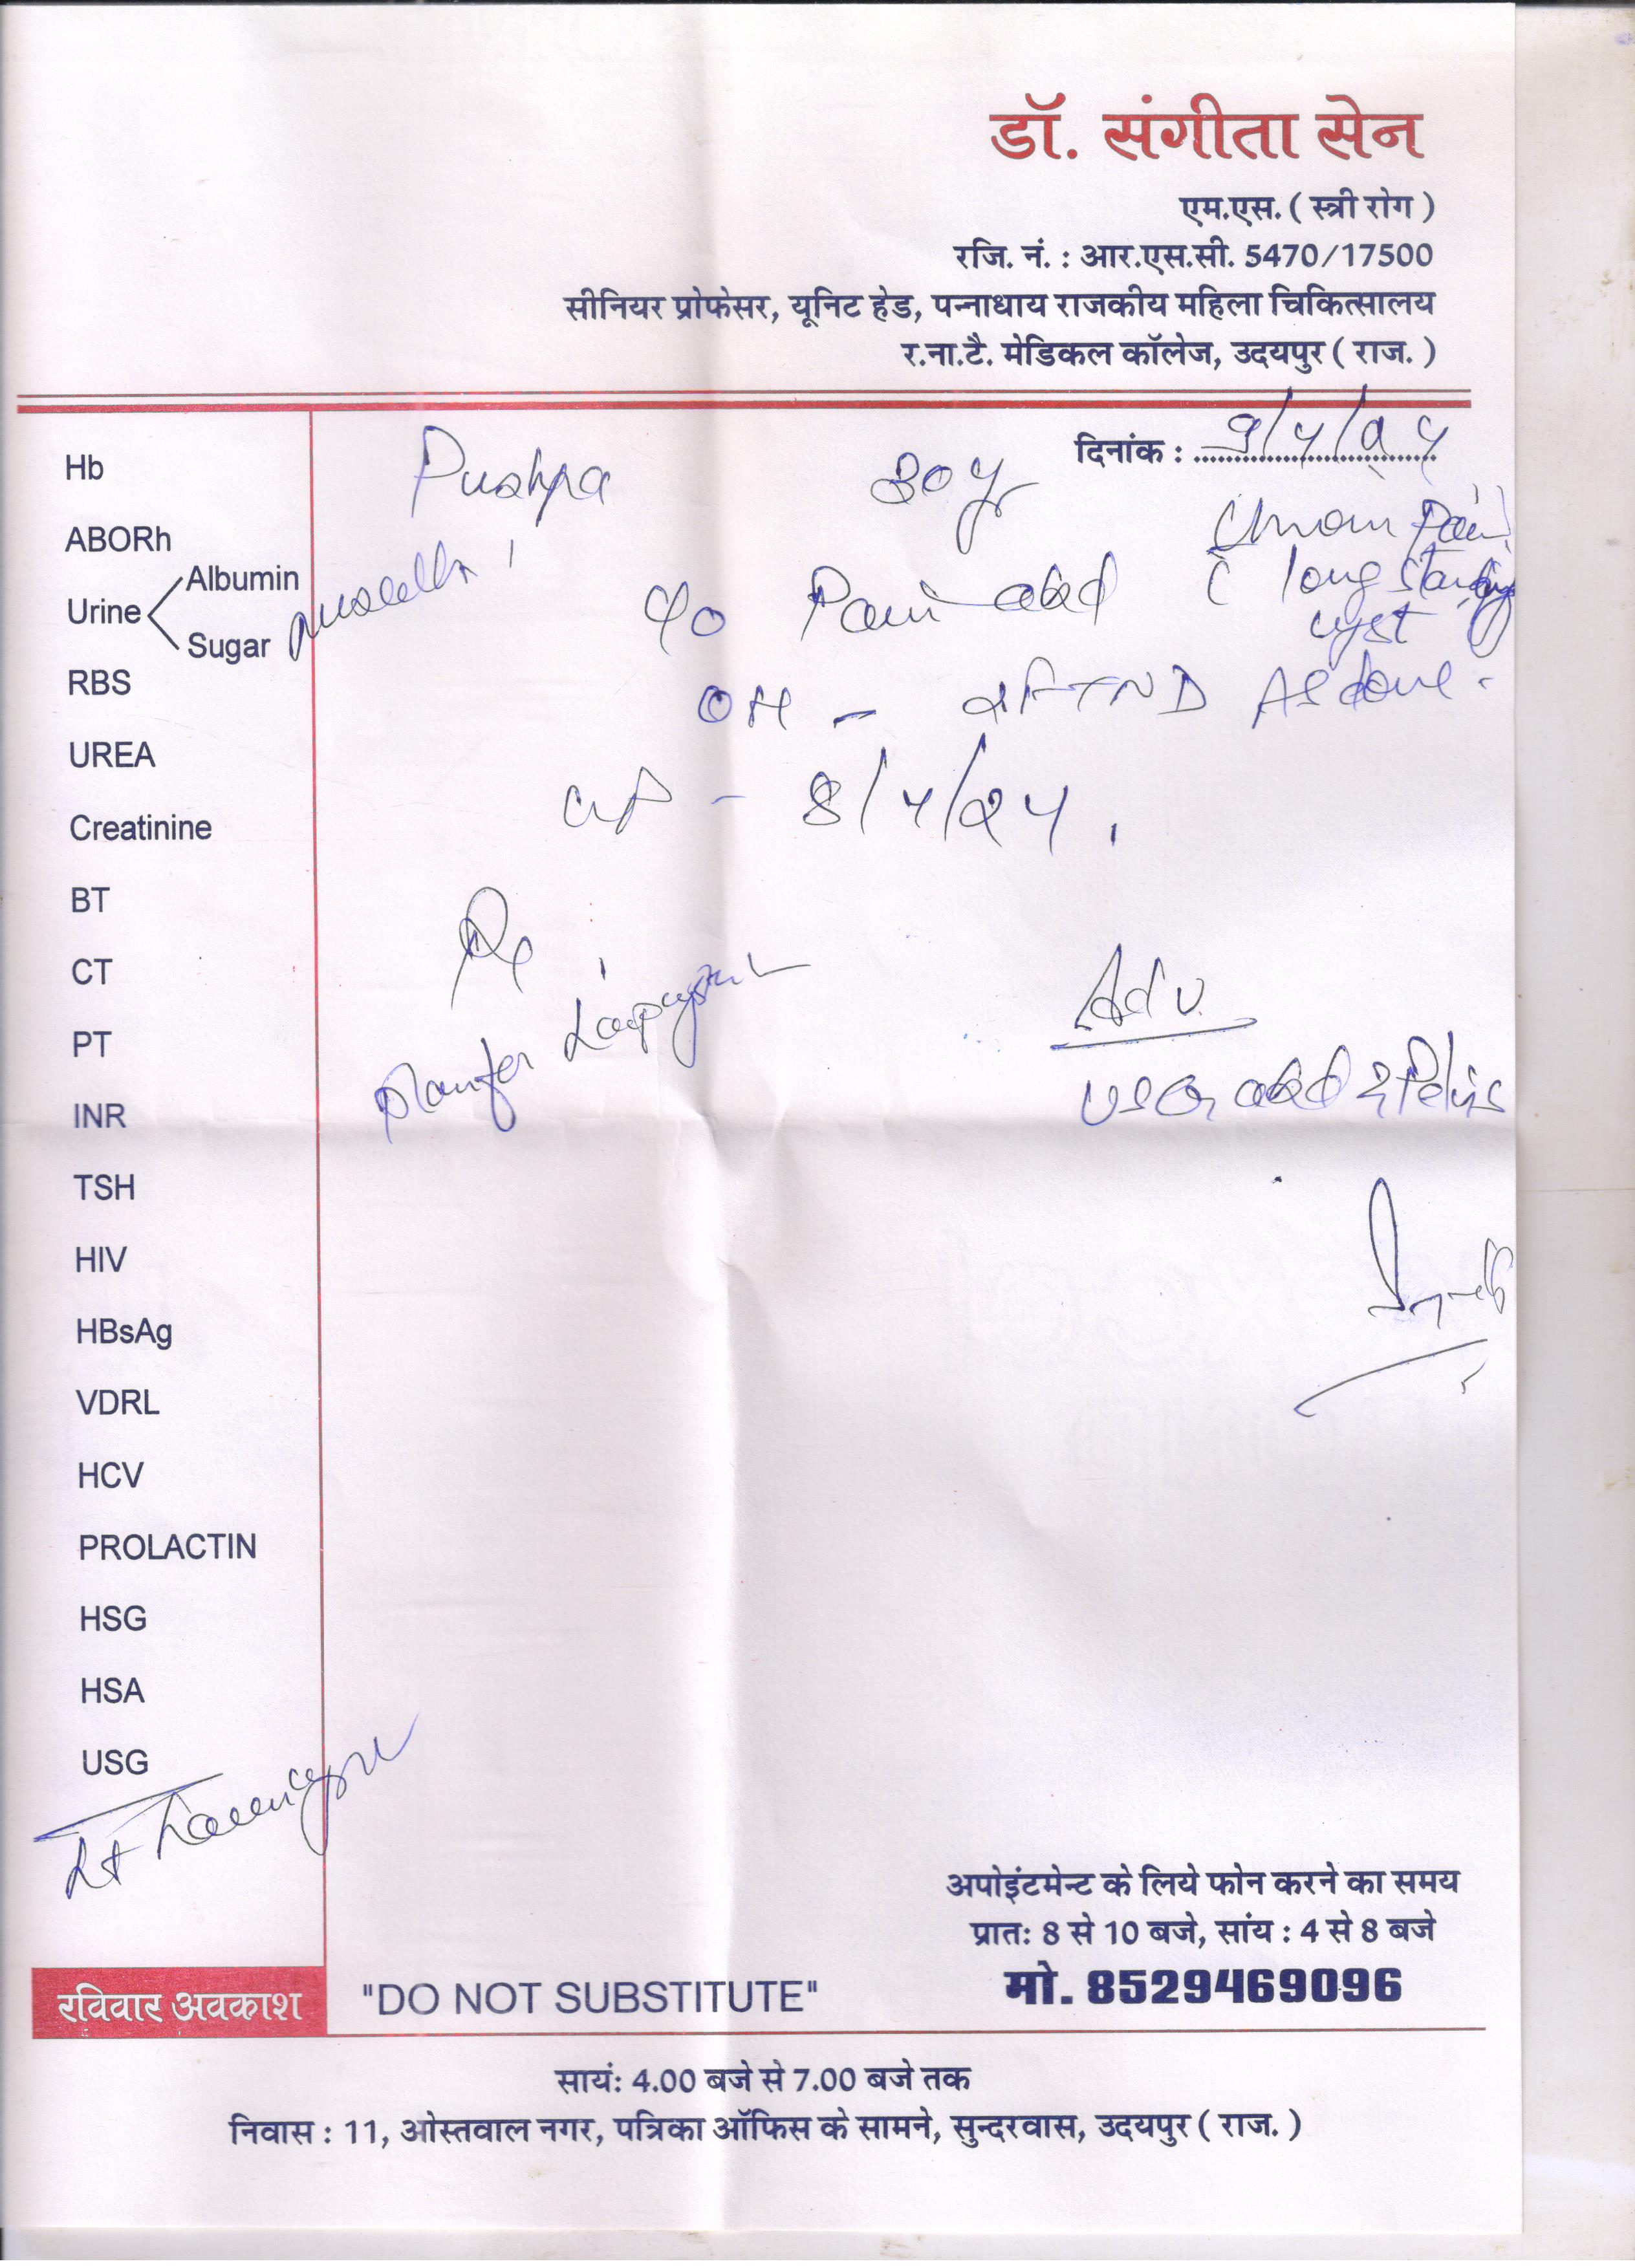 डॉ. संगीता सेन
एम.एस. ( स्त्री रोग )
रजि. नं. : आर.एस.सी. 5470/17500
सीनियर प्रोफेसर, यूनिट हेड, पन्नाधाय राजकीय महिला चिकित्सालय
र.ना.टै. मेडिकल कॉलेज, उदयपुर ( राज. )
दिनांक : 9/4/24
Pushpa 30 yr
Pain
C long standing
cyst
c/o Pain abd
OH - 2FTND
8/4/24
Rx
Plan for
Adv
USG abd & Pelvis
Hb
ABORh
Urine Albumin
Sugar
RBS
UREA
Creatinine
BT
CT
PT
INR
TSH
HIV
HBsAg
VDRL
HCV
PROLACTIN
HSG
HSA
USG
अपोइंटमेन्ट के लिये फोन करने का समय
प्रातः 8 से 10 बजे, सांय : 4 से 8 बजे
मो. 8529469096
रविवार अवकाश
"DO NOT SUBSTITUTE"
सायं: 4.00 बजे से 7.00 बजे तक
निवास : 11, ओस्तवाल नगर, पत्रिका ऑफिस के सामने, सुन्दरवास, उदयपुर ( राज. )